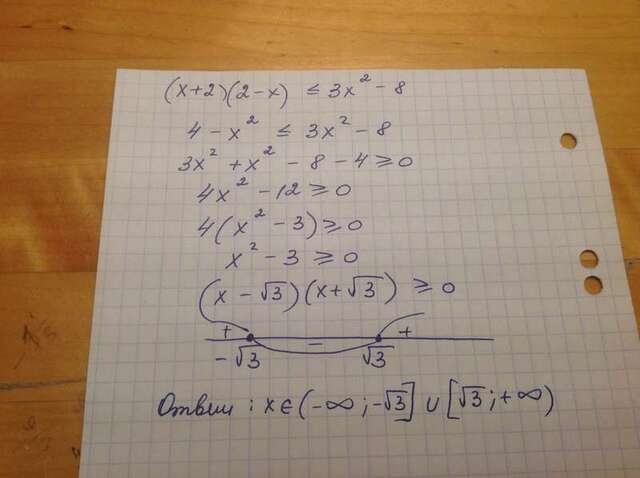 (x+2)(2-x) ≤ 3x² - 8
4 - x² ≤ 3x² - 8
3x² + x² - 8 - 4 ≥ 0
4x² - 12 ≥ 0
4(x² - 3) ≥ 0
x² - 3 ≥ 0
(x - √3)(x + √3) ≥ 0
+ - +
-√3 √3
Ответ : x ∈ (-∞ ; -√3] ∪ [√3 ; +∞)